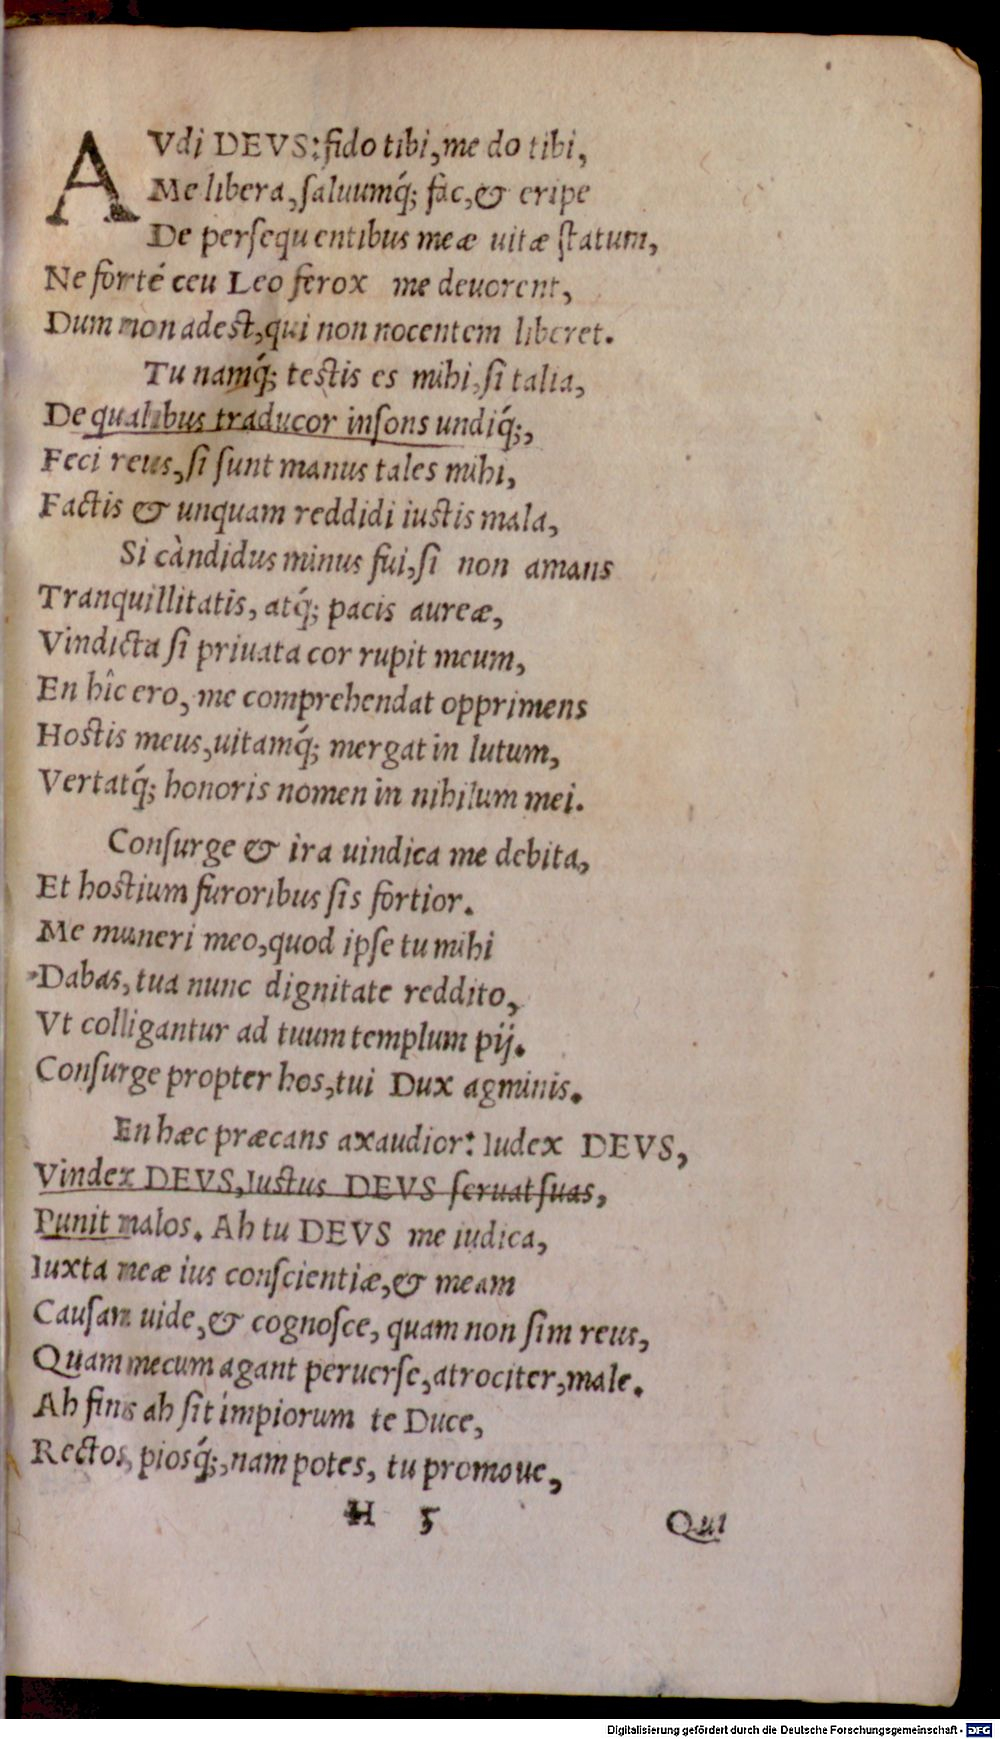 AVdi DEVS: fido tibi, me do tibi,
Me libera, ſaluumq́; fac, & eripe
De perſequentibus meæ uitæ ſtatum,
Ne forté ceu Leo ferox me deuorent,
Dum non adest, qui non nocentem liberet.
Tu namq́; testis es mihi, ſi talia,
De qualibus traducor inſons undiq́;,
Feci reus, ſi ſunt manus tales mihi,
Factis & unquam reddidi iustis mala,
Si càndidus minus fui, ſi non amans
Tranquillitatis, atq́; pacis aureæ,
Vindicta ſi priuata cor rupit meum,
En hîc ero, me comprehendat opprimens
Hostis meus, uitamq́; mergat in lutum,
Vertatq́; honoris nomen in nihilum mei.
Conſurge & ira uindica me debita,
Et hostium furoribus ſis fortior.
Me muneri meo, quod ipſe tu mihi
Dabas, tua nunc dignitate reddito,
Vt colligantur ad tuum templum pij.
Conſurge propter hos, tui Dux agminis.
En hæc præcans axaudior: Iudex DEVS,
Vindex DEVS, Iustus DEVS ſeruat ſuas,
Punit malos. Ah tu DEVS me iudica,
Iuxta meæ ius conſcientiæ, & meam
Cauſam uide, & cognoſce, quam non ſim reus,
Quam mecum agant peruerſe, atrociter, male.
Ah finis ah ſit impiorum te Duce,
Rectos, piosq́;, nam potes, tu promoue,
H 5 Qui
Digitalisierung gefördert durch die Deutsche Forschungsgemeinschaft - DFG